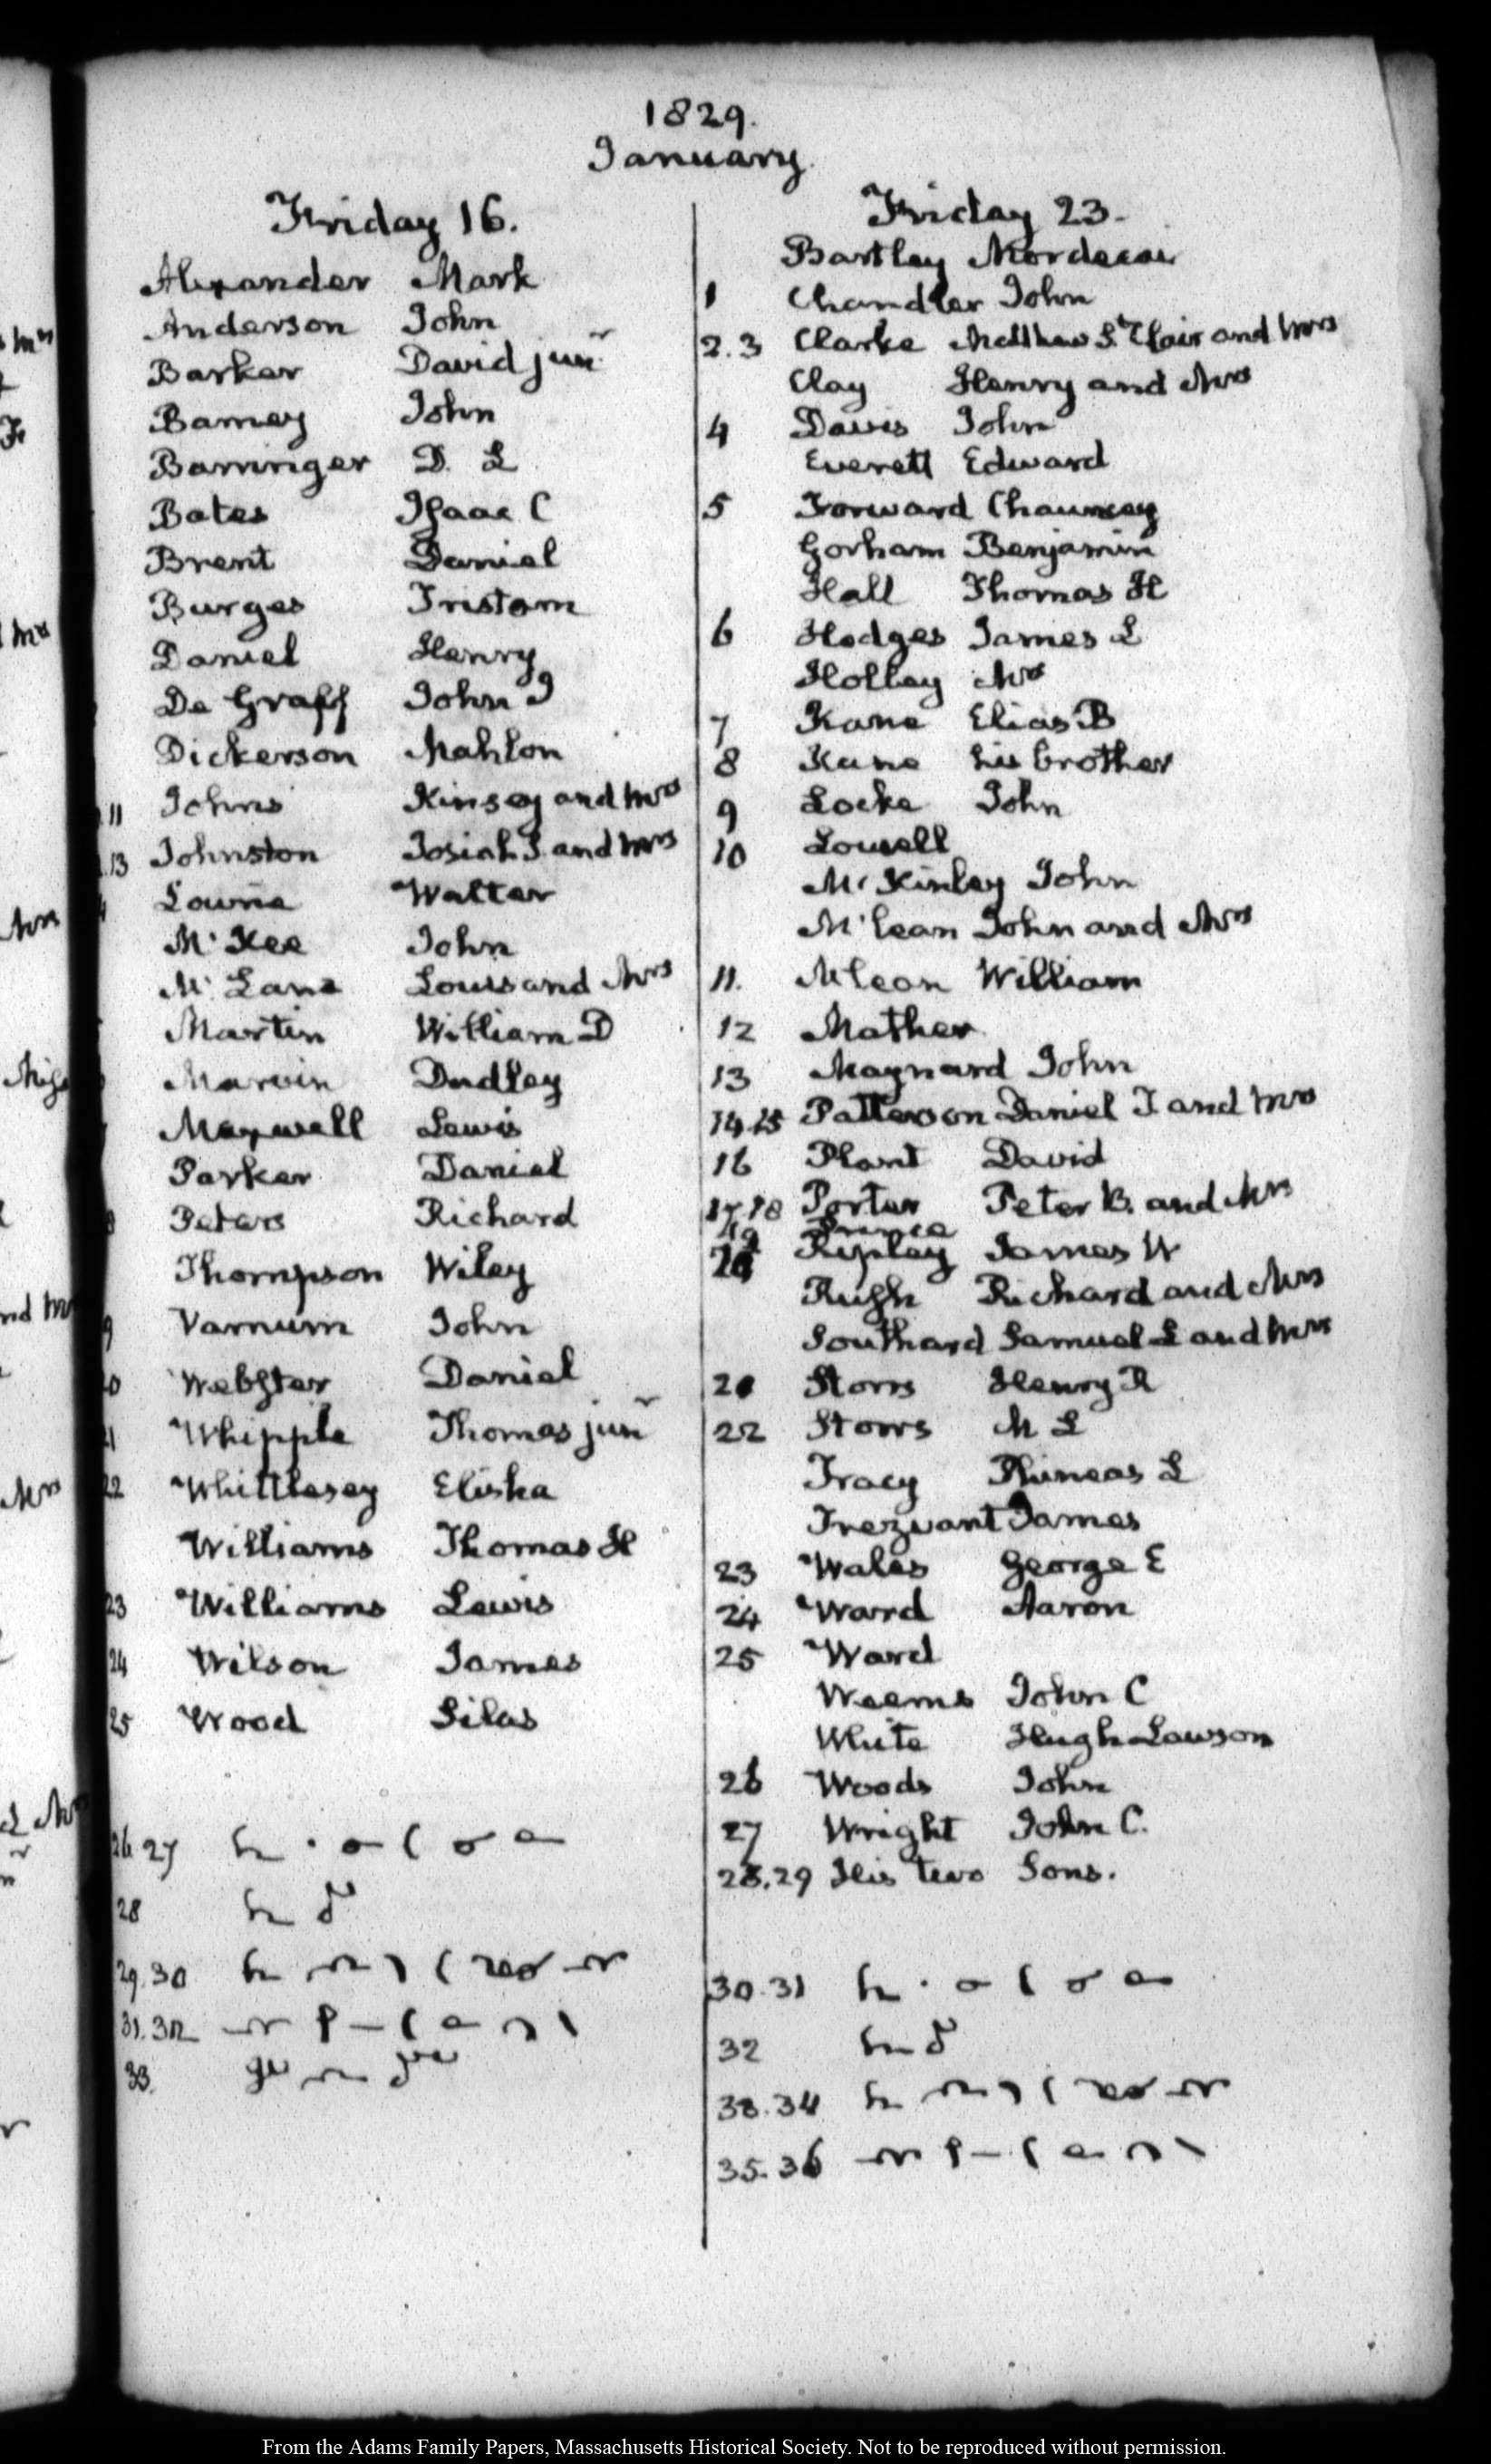 1829.
January.
Friday 16.
Alexander Mark
Anderson John
Barker David junr
Barney John
Barringer D. L
Bates Isaac C
Brent Daniel
Burges Tristam
Daniel Henry
De Graff John I
Dickerson Mahlon
11 Johns Kinsey and Mrs
13 Johnston Josiah S. and Mrs
Lowrie Walter
Mc Kee John
Mc Lane Louis and Mrs
Martin William D
Marvin Dudley
Maxwell Lewis
Parker Daniel
Peters Richard
Thompson Wiley
Varnum John
Webster Daniel
Whipple Thomas junr
22 Whittlesey Elisha
Williams Thomas H
23 Williams Lewis
24 Wilson James
25 Wood Silas
26.27
28
29.30
31.32
33.
Friday 23.
Bartley Mordecai
1 Chandler John
2.3 Clarke Matthew St Clair and Mrs
Clay Henry and Mrs
4 Davis John
Everett Edward
5 Forward Chauncey
Gorham Benjamin
Hall Thomas H
6 Hodges James L
Holley Mrs
7 Kane Elias B
8 Kane his brother
9 Locke John
10 Lowell
Mc Kinley John
Mc lean John and Mrs
11. Mclean William
12 Mather
13 Maynard John
14.15 Patterson Daniel T and Mrs
16 Plant David
17.18 Porter Peter B. and Mrs
19 Prince
20 Ripley James W
Rush Richard and Mrs
Southard Samuel L and Mrs
21 Storrs Henry R
22 Storrs
Tracy Phineas L
Trezvant James
23 Wales George E
24 Ward Aaron
25 Ward
Weems John C
White Hugh Lawson
26 Woods John
27 Wright John C.
28.29 His two Sons.
30.31
32
33.34
35.36
From the Adams Family Papers, Massachusetts Historical Society. Not to be reproduced without permission.